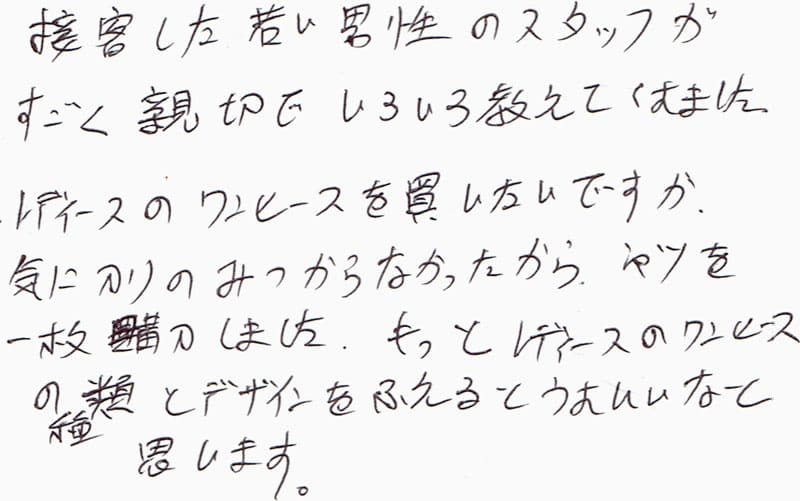 接客した若い男性のスタッフが
すごく親切でいろいろ教えてくれました
レディースのワンピースを買いたいですが、
気に入りのみつからなかったから、シャツを
一枚購入しました. もっとレディースのワンピース
の種類とデザインをふえるとうれしいなと
思います。